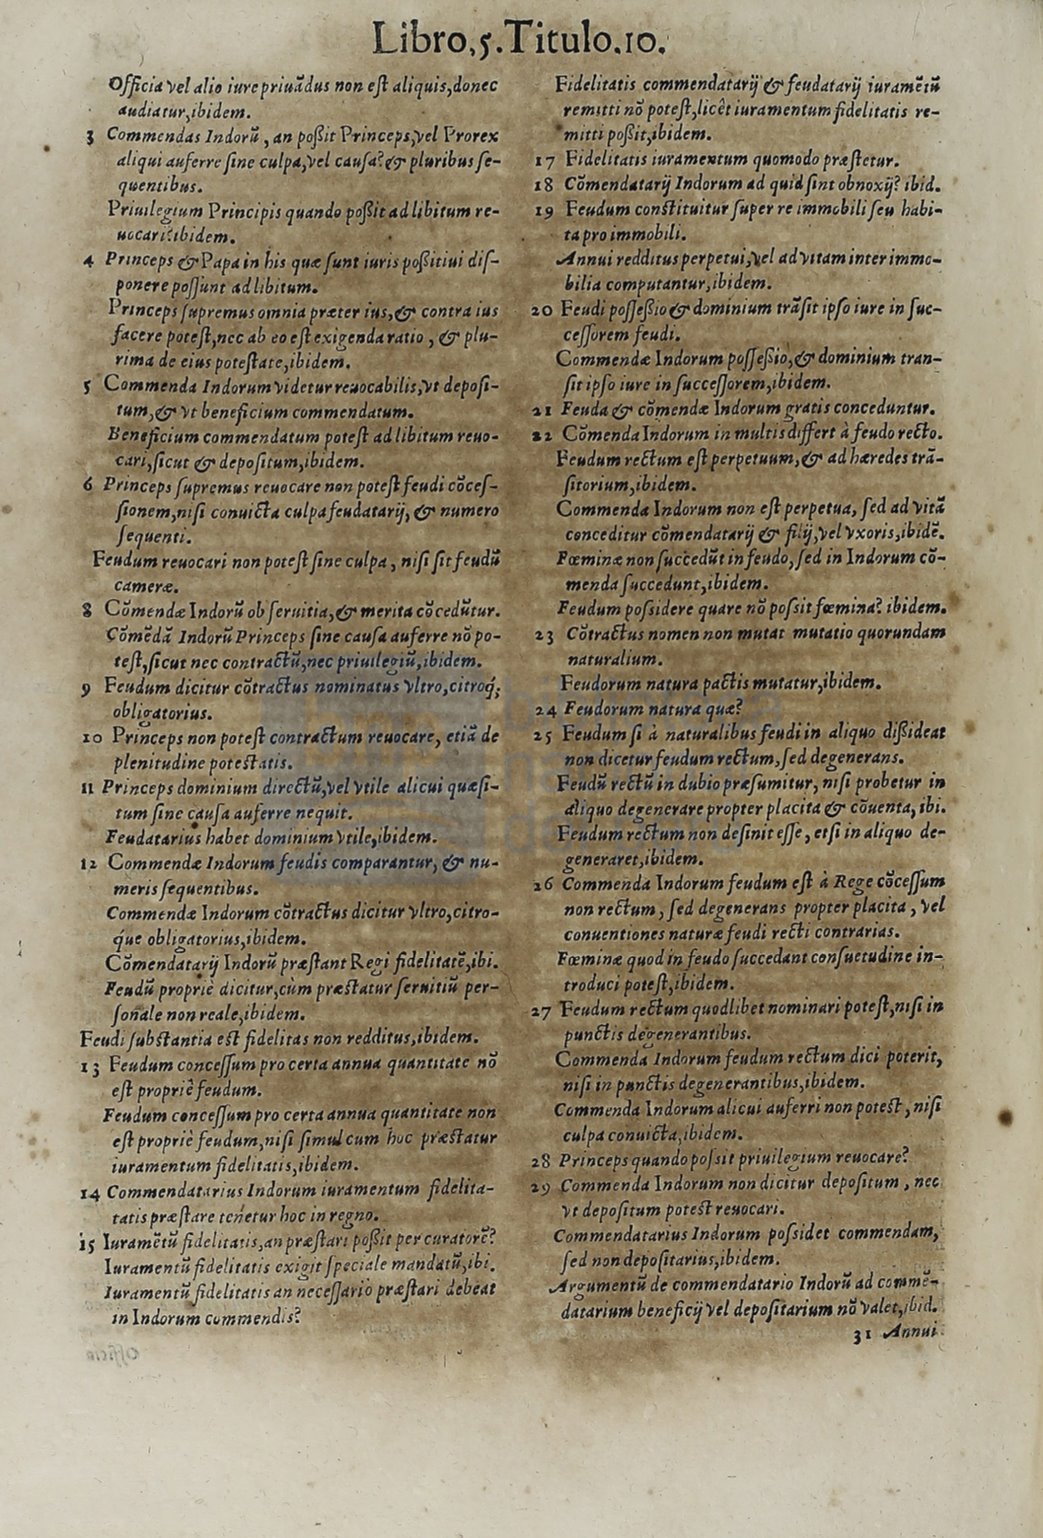 Libro,5.Titulo.10.
Officia vel alio iure priuãdus non est aliquis, donec
audiatur, ibidem.
3 Commendas Indorũ, an poßit Princeps, vel Prorex
aliqui auferre sine culpa, vel causa? & pluribus se-
quentibus.
Priuilegium Principis quando poßit ad libitum re-
uocari? ibidem.
4 Princeps & Papa in his quæ sunt iuris poßitiui dis-
ponere possunt ad libitum.
Princeps supremus omnia præter ius, & contra ius
facere potest, nec ab eo est exigenda ratio, & plu-
rima de eius potestate, ibidem.
5 Commenda Indorum videtur reuocabilis, vt deposi-
tum, & vt beneficium commendatum.
Beneficium commendatum potest ad libitum reuo-
cari, sicut & depositum, ibidem.
6 Princeps supremus reuocare non potest feudi cõces-
sionem, nisi conuicta culpa feudatarij, & numero
sequenti.
Feudum reuocari non potest sine culpa, nisi sit feudũ
cameræ.
8 Cõmendæ Indorũ ob seruitia, & merita cõcedũtur.
Cõmẽdã Indorũ Princeps sine causa auferre nõ po-
test, sicut nec contractũ, nec priuilegiũ, ibidem.
9 Feudum dicitur cõtractus nominatus vltro, citroq́;
obligatorius.
10 Princeps non potest contractum reuocare, etiã de
plenitudine potestatis.
11 Princeps dominium directũ, vel vtile alicui quæsi-
tum sine causa auferre nequit.
Feudatarius habet dominium vtile, ibidem.
12 Commendæ Indorum feudis comparantur, & nu-
meris sequentibus.
Commendæ Indorum cõtractus dicitur vltro, citro-
q́ue obligatorius, ibidem.
Cõmendatarij Indorũ præstant Regi fidelitatẽ, ibi.
Feudũ propriè dicitur, cùm præstatur seruitiũ per-
sonale non reale, ibidem.
Feudi substantia est fidelitas non redditus, ibidem.
13 Feudum concessum pro certa annua quantitate nõ
est propriè feudum.
Feudum concessum pro certa annua quantitate non
est propriè feudum, nisi simul cum hoc præstatur
iuramentum fidelitatis, ibidem.
14 Commendatarius Indorum iuramentum fidelita-
tatis præstare tenetur hoc in regno.
15 Iuramẽtũ fidelitatis, an præstari poßit per curatorẽ?
Iuramentũ fidelitatis exigit speciale mandatũ, ibi.
Iuramentũ fidelitatis an necessariò præstari debeat
in Indorum commendis?
Fidelitatis commendatarij & feudatarij iuramẽtũ
remitti nõ potest, licèt iuramentum fidelitatis re-
mitti poßit, ibidem.
17 Fidelitatis iuramentum quomodo præstetur.
18 Cõmendatarij Indorum ad quid sint obnoxij? ibid.
19 Feudum constituitur super re immobili seu habi-
ta pro immobili.
Annui redditus perpetui, vel ad vitam inter immo-
bilia computantur, ibidem.
20 Feudi posseßio & dominium trãsit ipso iure in suc-
cessorem feudi.
Commendæ Indorum posseßio, & dominium tran-
sit ipso iure in successorem, ibidem.
21 Feuda & cõmendæ Indorum gratis conceduntur.
22 Cõmenda Indorum in multis differt à feudo recto.
Feudum rectum est perpetuum, & ad hæredes trã-
sitorium, ibidem.
Commenda Indorum non est perpetua, sed ad vitã
conceditur cõmendatarij & filij, vel vxoris, ibidẽ.
Fœminæ non succedũt in feudo, sed in Indorum cõ-
menda succedunt, ibidem.
Feudum possidere quare nõ possit fœmina? ibidem.
23 Cõtractus nomen non mutat mutatio quorundam
naturalium.
Feudorum natura pactis mutatur, ibidem.
24 Feudorum natura quæ?
25 Feudum si à naturalibus feudi in aliquo dißideat
non dicetur feudum rectum, sed degenerans.
Feudũ rectũ in dubio præsumitur, nisi probetur in
aliquo degenerare propter placita & cõuenta, ibi.
Feudum rectum non desinit esse, etsi in aliquo de-
generaret, ibidem.
26 Commenda Indorum feudum est à Rege cõcessum
non rectum, sed degenerans propter placita, vel
conuentiones naturæ feudi recti contrarias.
Fœminæ quod in feudo succedant consuetudine in-
troduci potest, ibidem.
27 Feudum rectum quodlibet nominari potest, nisi in
punctis degenerantibus.
Commenda Indorum feudum rectum dici poterit,
nisi in punctis degenerantibus, ibidem.
Commenda Indorum alicui auferri non potest, nisi
culpa conuicta, ibidem.
28 Princeps quando possit priuilegium reuocare?
29 Commenda Indorum non dicitur depositum, nec
vt depositum potest reuocari.
Commendatarius Indorum possidet commendam,
sed non depositarius, ibidem.
Argumentũ de commendatario Indorũ ad commẽ-
datarium beneficij vel depositarium nõ valet, ibid.
31 Annui